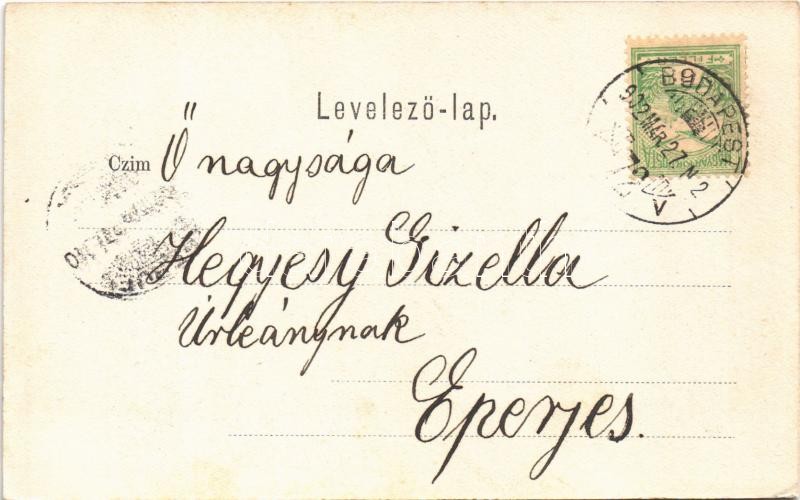 Levelező-lap.
BUDAPEST
902 MÁR 27 N2
Czim Ő nagysága
Hegyesy Gizella
Úrleánynak
Eperjes.